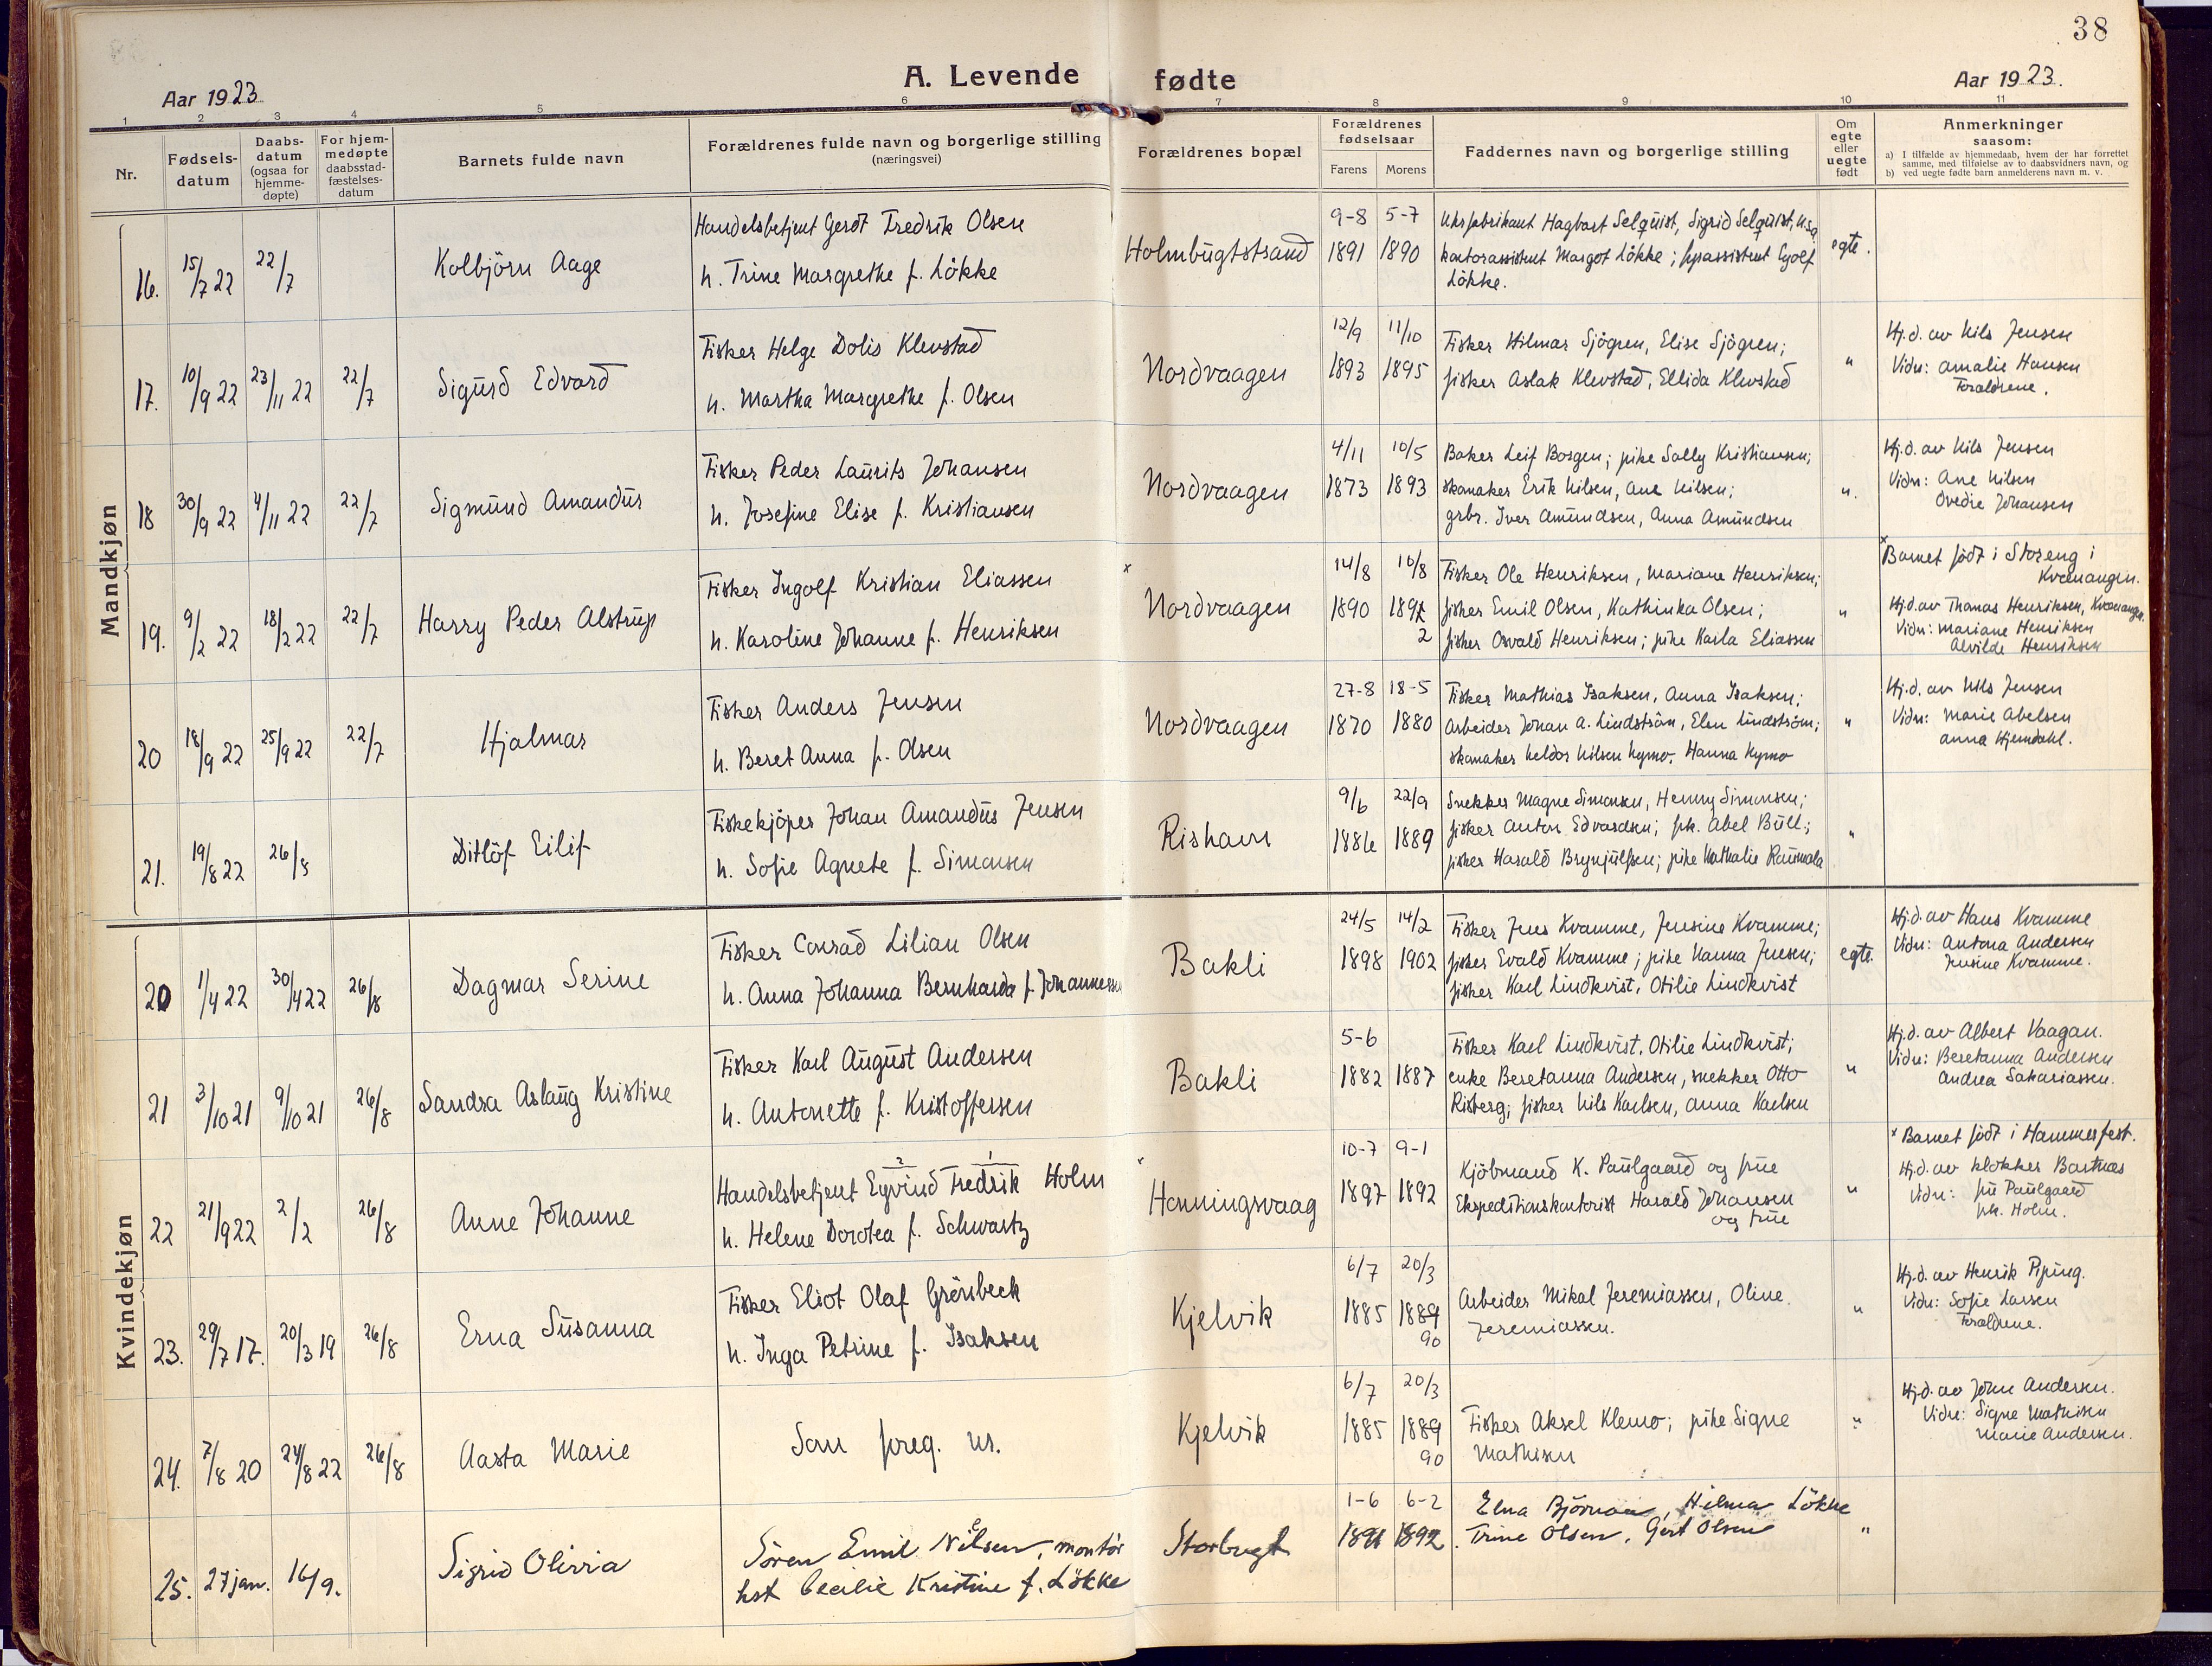 38
Aar 1923
A. Levende fødte
Aar 1923.
1 2 3 4 5 6 7 8 9 10 11
Nr.
Fødsels-
datum
Daabs-
datum
(ogsaa for
hjemme-
døpte)
For hjem-
medøpte
daabsstad-
fæstelses-
datum
Barnets fulde navn
Forældrenes fulde navn og borgerlige stilling
(næringsvei)
Forældrenes bopæl
Forældrenes
fødselsaar
Farens Morens
Faddernes navn og borgerlige stilling
Om
egte
eller
uegte
født
Anmerkninger
saasom:
a) I tilfælde av hjemmedaab, hvem der har forrettet
samme, med tilføielse av to daabsvidners navn, og
b) ved uegte fødte barn anmelderens navn m. v.
Mandkjøn
16. 15/7 22 22/7 Kolbjörn Aage
Handelsbetjent Gerdt Fredrik Olsen
h. Trine Margrethe f. Lökke
Holmbugtstrand
9-8 5-7
1891 1890
Selquist, Sigrid Selquist,
kontorassistent Margot Lökke;
Lökke.
egte.
17. 10/9 22 23/11 22 22/7 Sigurd Edvard
Fisker Helge Dolis Klevstad
h. Martha Margrethe f. Olsen
Nordvaagen
12/9 11/10
1893 1895
Fisker Hilmar Sjögren, Elise Sjögren;
fisker Aslak Klevstad, Ellida Klevstad
"
Hj.d. av Nils Jensen
Vidn: Amalie Hansen
Foraldrene.
18 30/9 22 4/11 22 22/7 Sigmund Amandus
Fisker Peder Laurits Johansen
h. Josefine Elise f. Kristiansen
Nordvaagen
4/11 10/5
1873 1893
Baker Leif Borgen; pike Sally Kristiansen;
skomaker Erik Nilsen, Ane Nilsen;
grbr. Iver Amundsen, Anna Amundsen
".
Hj.d. av Nils Jensen
Vidn: Ane Nilsen
Ovedie Johansen
19. 9/2 22 18/2 22 22/7 Harry Peder Alstrup
Fisker Ingolf Kristian Eliassen
h. Karoline Johanne f. Henriksen
x
Nordvaagen
14/8 10/8
1890 1891
2
Fisker Ole Henriksen, Mariane Henriksen;
fisker Emil Olsen, Kathinka Olsen;
fisker Osvald Henriksen; pike Karla Eliassen
"
x Barnet födt i Storeng i
Kvænangen.
Hj.d. av Thomas Henriksen, Kvænangen.
Vidn: Mariane Henriksen
Alvilde Henriksen
20 18/9 22 25/9 22 22/7 Hjalmar
Fisker Anders Jensen
h. Beret Anna f. Olsen
Nordvaagen
27-8 18-5
1870 1880
Fisker Mathias Isaksen, Anna Isaksen;
Arbeider Johan A. Lindström, Elen Lindström;
skomaker Nilsen Kymo, Hanna Kymo
"
Hj.d. av Nils Jensen
Vidn: Marie Abelsen
Anna Hjemdahl.
21. 19/8 22 26/8 Ditlöf Eilif
Fiskekjöper Johan Amandus Jensen
h. Sofie Agnete f. Simonsen
Rishavn
9/6 22/9
1886 1889
Snekker Magne Simonsen, Henny Simonsen;
fisker Anton Edvardsen; pk. Abel Bull;
fisker Harald Brynjulfsen; pike Nathalie Raumala
"
Kvindekjøn
20 1/4 22 30/4 22 26/8 Dagmar Serine
Fisker Conrad Lilian Olsen
h. Anna Johanna Bernharda f. Johannessen
Bakli
24/5 14/2
1898 1902
Fisker Jens Kvamme, Jensine Kvamme;
fisker Evald Kvamme; pike Hanna Jensen;
fisker Karl Lindkvist, Otilie Lindkvist
egte.
Hj.d. av Hans Kvamme
Vidn: Antona Andersen
Jensine Kvamme.
21 3/10 21 9/10 21 26/8 Sandra Aslaug Kristine
Fisker Karl August Andersen
h. Antonette f. Kristoffersen
Bakli
5-6
1882 1887
Fisker Karl Lindkvist, Otilie Lindkvist;
enke Beretanna Andersen, snekker Otto
Risberg; fisker Nils Karlsen, Anna Karlsen
"
Hj.d. av Albert Vaagan.
Vidn: Beretanna Andersen
Andrea Sakariassen.
22 21/9 22 2/2 26/8 Anne Johanne
2 1
Handelsbetjent Eyvind Fredrik Holm
h. Helene Dorotea f. Schwartz
x
Honningsvaag
10-7 9-1
1897 1892
Kjöbmand K. Paulgaard og frue
Ekspeditionskontorist Harald Johansen
og frue
"
x Barnet födt i Hammerfest.
Hj.d. av klokker Bartnæs
Vidn: fru Paulgaard
pk. Holm.
23. 29/7 17. 20/3 19 26/8 Erna Susanna
Fisker Eliot Olaf Grönbeck
h. Inga Petrine f. Isaksen
Kjelvik
6/7 20/3
1885 1889
90
Arbeider Mikal Jeremiassen, Oline
Jeremiassen.
"
Hj.d. av Henrik Piping.
Vidn: Sofie Larsen
Foraldrene.
24. 7/8 20 24/8 22 26/8 Aasta Marie
Som foreg. nr.
Kjelvik
6/7 20/3
1885 1889
90
Fisker Aksel Klemo; pike Signe
Mathisen
"
Hj.d. av John Andersen.
Vidn: Signe Mathisen
Marie Andersen.
25. 27 jan. 16/9. Sigrid Olivia
Sören Emil Nilsen, montör
hst Cecilie Kristine f. Lökke
Storbugt
1-6 6-2
1891 1892
Elna Björnaa, Hilma Lökke
Trine Olsen, Gert Olsen
"